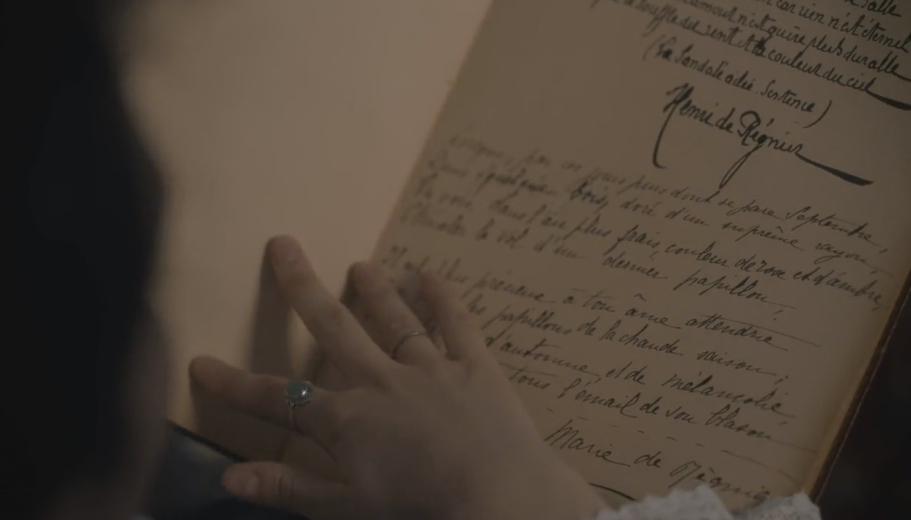 car rien n'est éternel
l'amour n'est guère plus durable
souffle du vent et la couleur du ciel
(La Sandale ailée. Sentence)
Henri de Régnier
par ces jours purs dont se pare Septembre,
quelque bois, doré d'un suprême rayon,
Tu vois, dans l'air plus frais, couleur de rose et d'ambre,
le vol d'un dernier papillon,
plus précieux à ton âme attendrie
les papillons de la chaude saison;
d'automne et de mélancolie,
tous l'émail de son blason
Marie de Régnier